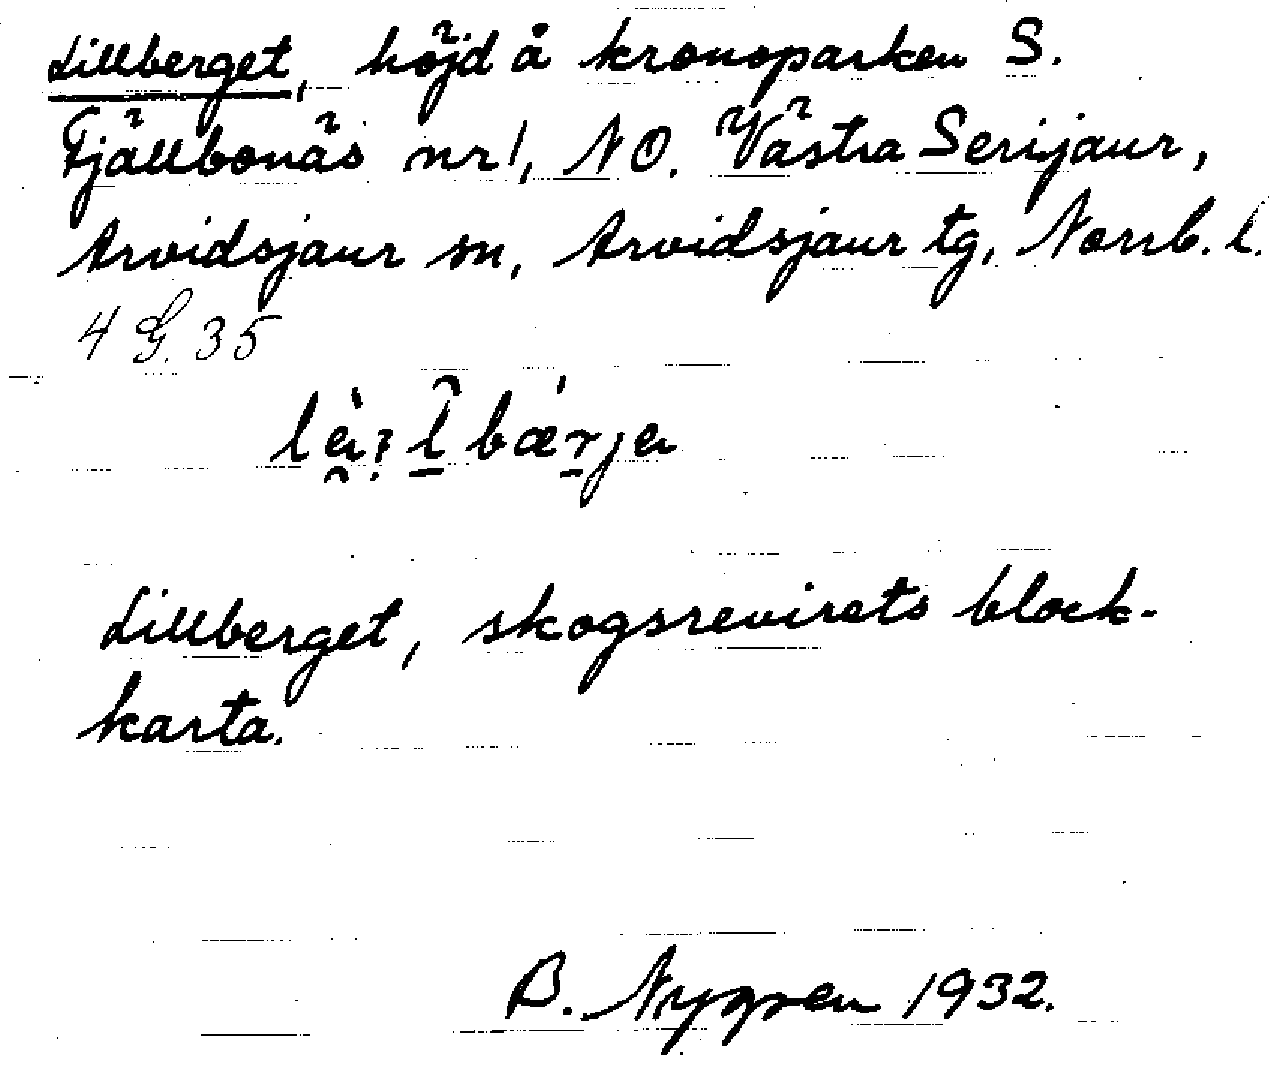 Lillberget, höjd å kronoparken S.
Fjällbonäs nr 1, NO. Västra Serijaur,
Arvidsjaur sn, Arvidsjaur tg, Norrb. l.
4 G. 35
Lillberget, skogsrevirets block-
karta.
B. Nygren 1932.